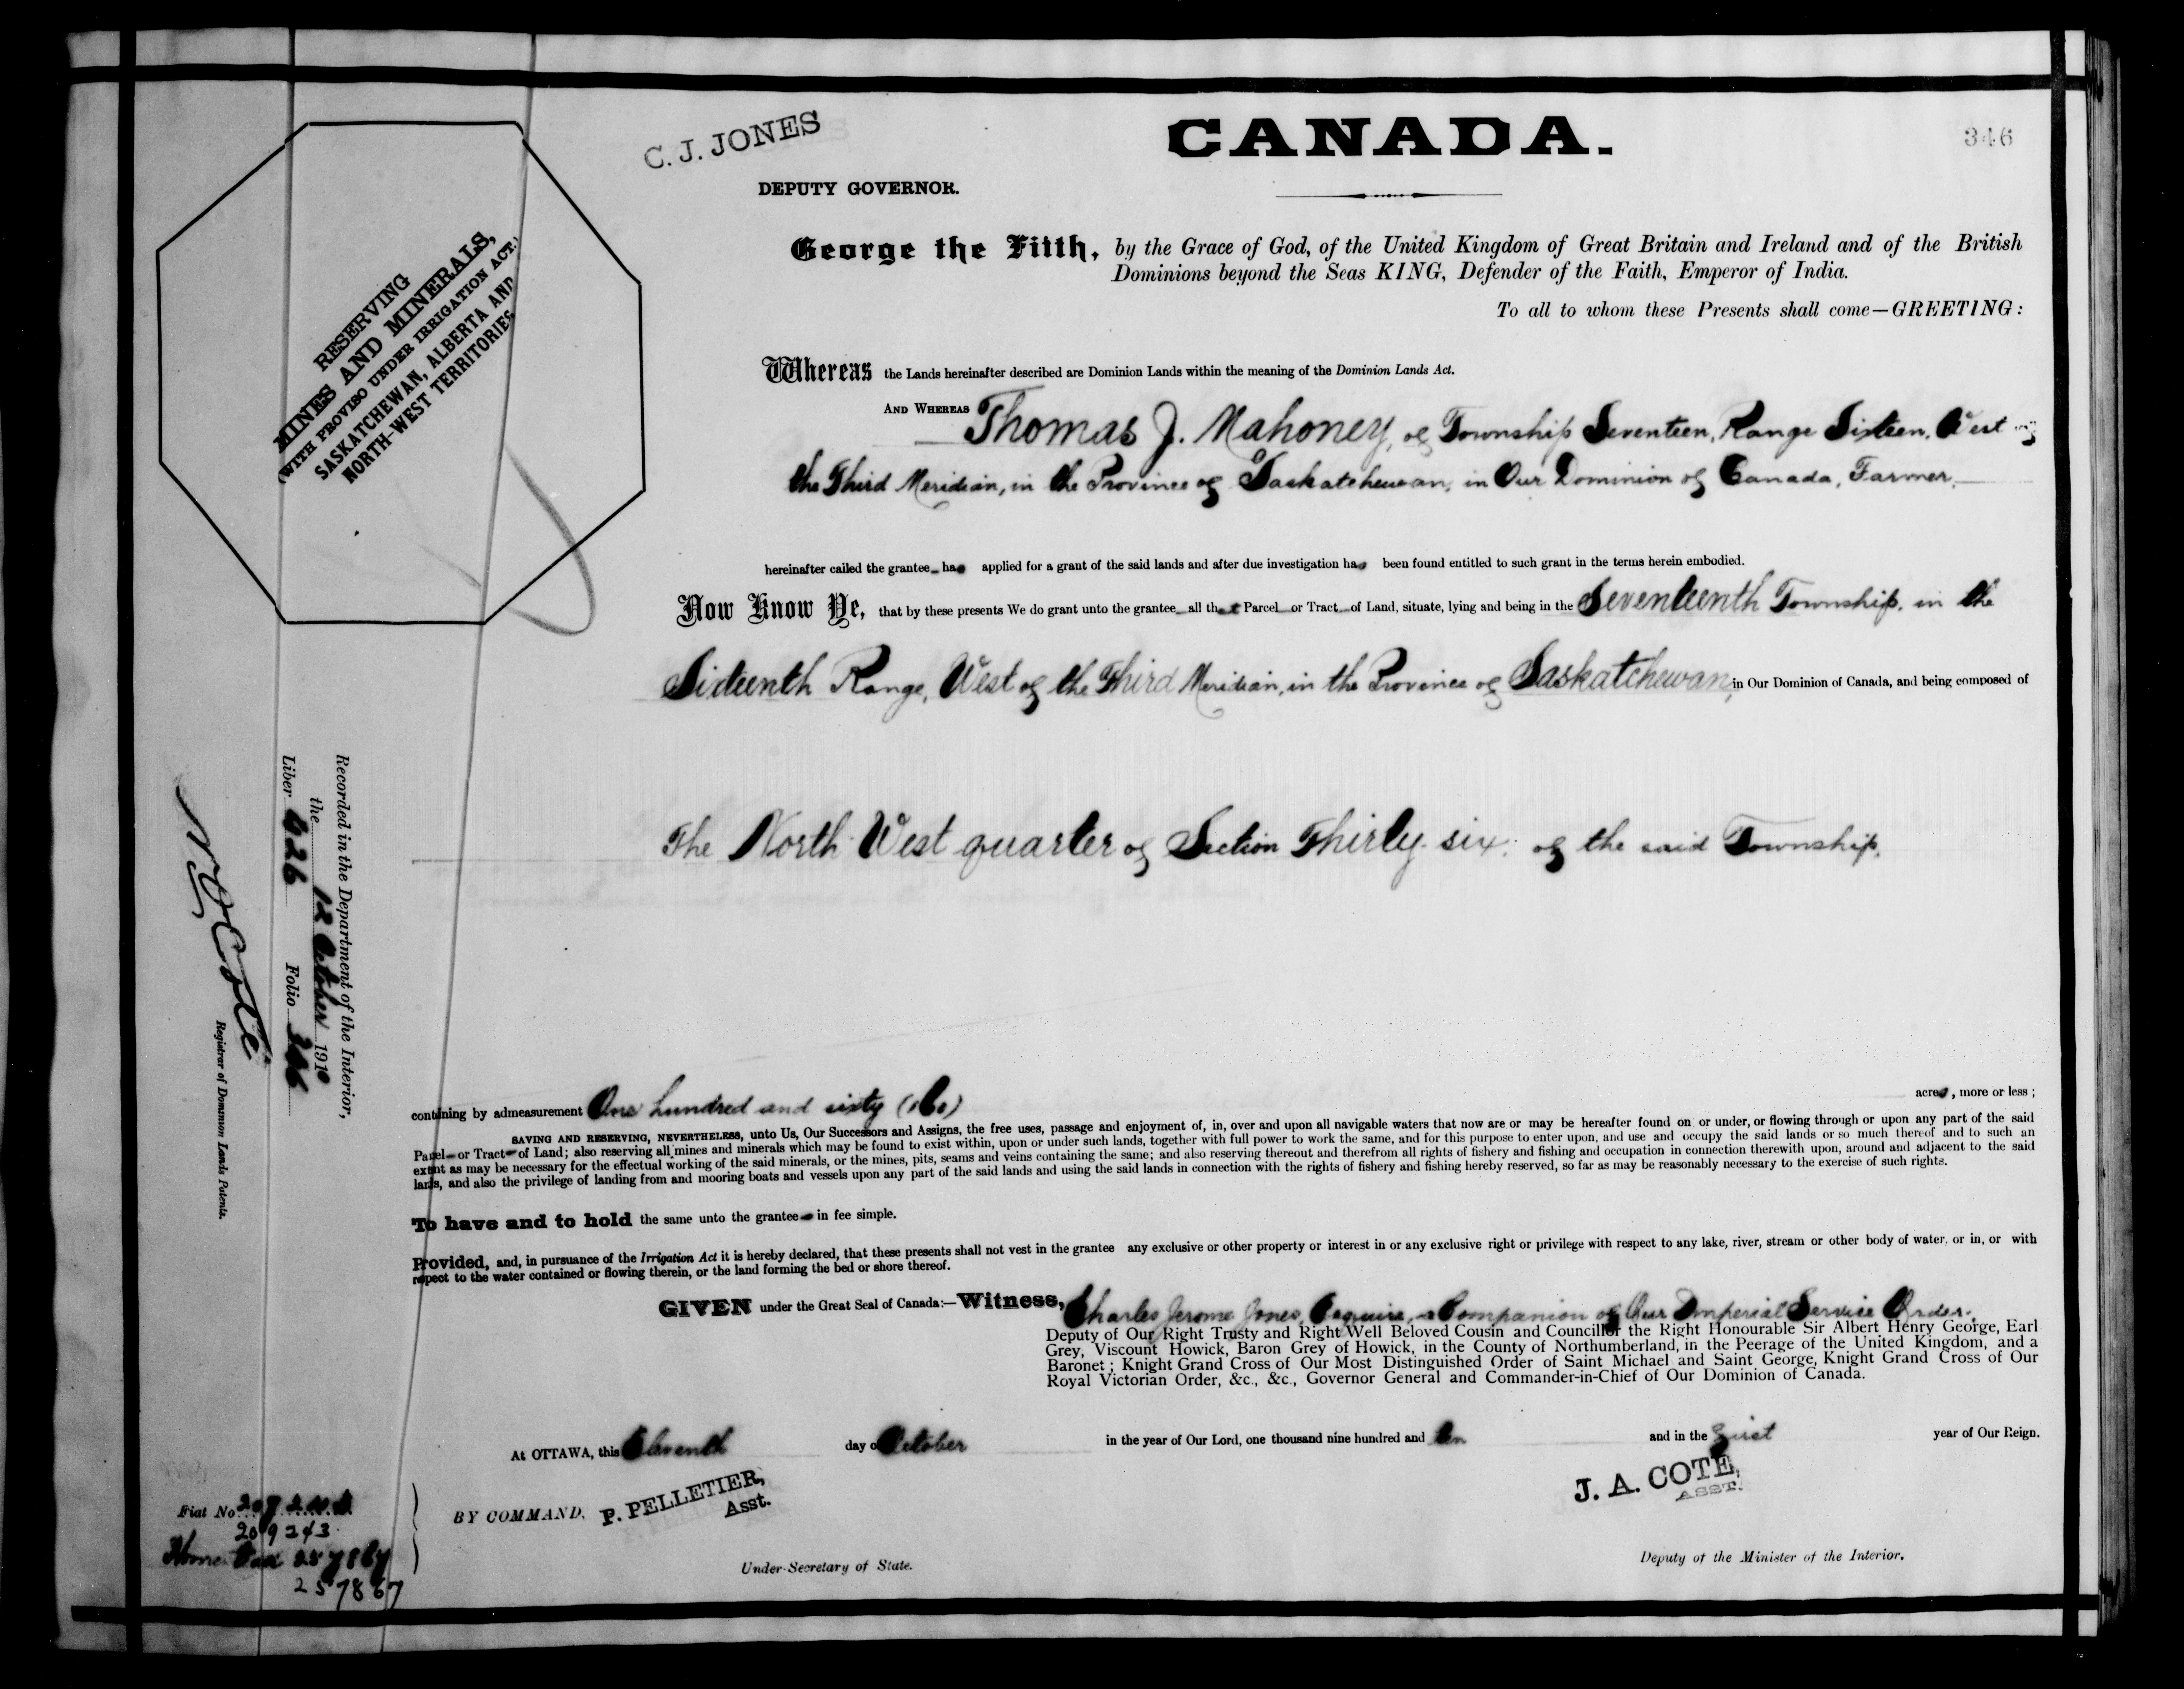 C. J. JONES
CANADA.
346
DEPUTY GOVERNOR.
George the Fifth, by the Grace of God, of the United Kingdom of Great Britain and Ireland and of the British
Dominions beyond the Seas KING, Defender of the Faith, Emperor of India.
To all to whom these Presents shall come—GREETING:
RESERVING
MINES AND MINERALS,
(WITH PROVISO UNDER IRRIGATION ACT.)
SASKATCHEWAN, ALBERTA AND
NORTH-WEST TERRITORIES
Whereas the Lands hereinafter described are Dominion Lands within the meaning of the Dominion Lands Act.
AND WHEREAS Thomas J. Mahoney, of Township Seventeen, Range Sixteen, West of
the Third Meridian, in the Province of Saskatchewan, in Our Dominion of Canada, Farmer,
hereinafter called the grantee has applied for a grant of the said lands and after due investigation has been found entitled to such grant in the terms herein embodied.
Now Know Ye, that by these presents We do grant unto the grantee all that Parcel or Tract of Land, situate, lying and being in the Seventeenth Township, in the
Sixteenth Range, West of the Third Meridian, in the Province of Saskatchewan, in Our Dominion of Canada, and being composed of
The North West quarter of Section Thirty-six, of the said Township,
Recorded in the Department of the Interior,
the 12 October 1910
Liber 626 Folio 346
N O Coté
Registrar of Dominion Lands Patents.
containing by admeasurement One hundred and sixty (160) acres, more or less;
SAVING AND RESERVING, NEVERTHELESS, unto Us, Our Successors and Assigns, the free uses, passage and enjoyment of, in, over and upon all navigable waters that now are or may be hereafter found on or under, or flowing through or upon any part of the said
Parcel or Tract of Land; also reserving all mines and minerals which may be found to exist within, upon or under such lands, together with full power to work the same, and for this purpose to enter upon, and use and occupy the said lands or so much thereof and to such an
extent as may be necessary for the effectual working of the said minerals, or the mines, pits, seams and veins containing the same; and also reserving thereout and therefrom all rights of fishery and fishing and occupation in connection therewith upon, around and adjacent to the said
lands, and also the privilege of landing from and mooring boats and vessels upon any part of the said lands and using the said lands in connection with the rights of fishery and fishing hereby reserved, so far as may be reasonably necessary to the exercise of such rights.
To have and to hold the same unto the grantee in fee simple.
Provided, and, in pursuance of the Irrigation Act it is hereby declared, that these presents shall not vest in the grantee any exclusive or other property or interest in or any exclusive right or privilege with respect to any lake, river, stream or other body of water, or in, or with
respect to the water contained or flowing therein, or the land forming the bed or shore thereof.
GIVEN under the Great Seal of Canada:—Witness, Charles Jerome Jones, Esquire, a Companion of Our Imperial Service Order,
Deputy of Our Right Trusty and Right Well Beloved Cousin and Councillor the Right Honourable Sir Albert Henry George, Earl
Grey, Viscount Howick, Baron Grey of Howick, in the County of Northumberland, in the Peerage of the United Kingdom, and a
Baronet; Knight Grand Cross of Our Most Distinguished Order of Saint Michael and Saint George, Knight Grand Cross of Our
Royal Victorian Order, &c., &c., Governor General and Commander-in-Chief of Our Dominion of Canada.
At OTTAWA, this Eleventh day of October in the year of Our Lord, one thousand nine hundred and ten and in the First year of Our Reign.
BY COMMAND, P. PELLETIER,
Asst.
Under-Secretary of State.
J. A. COTE,
ASST.
Deputy of the Minister of the Interior.
Fiat No
209243
257867